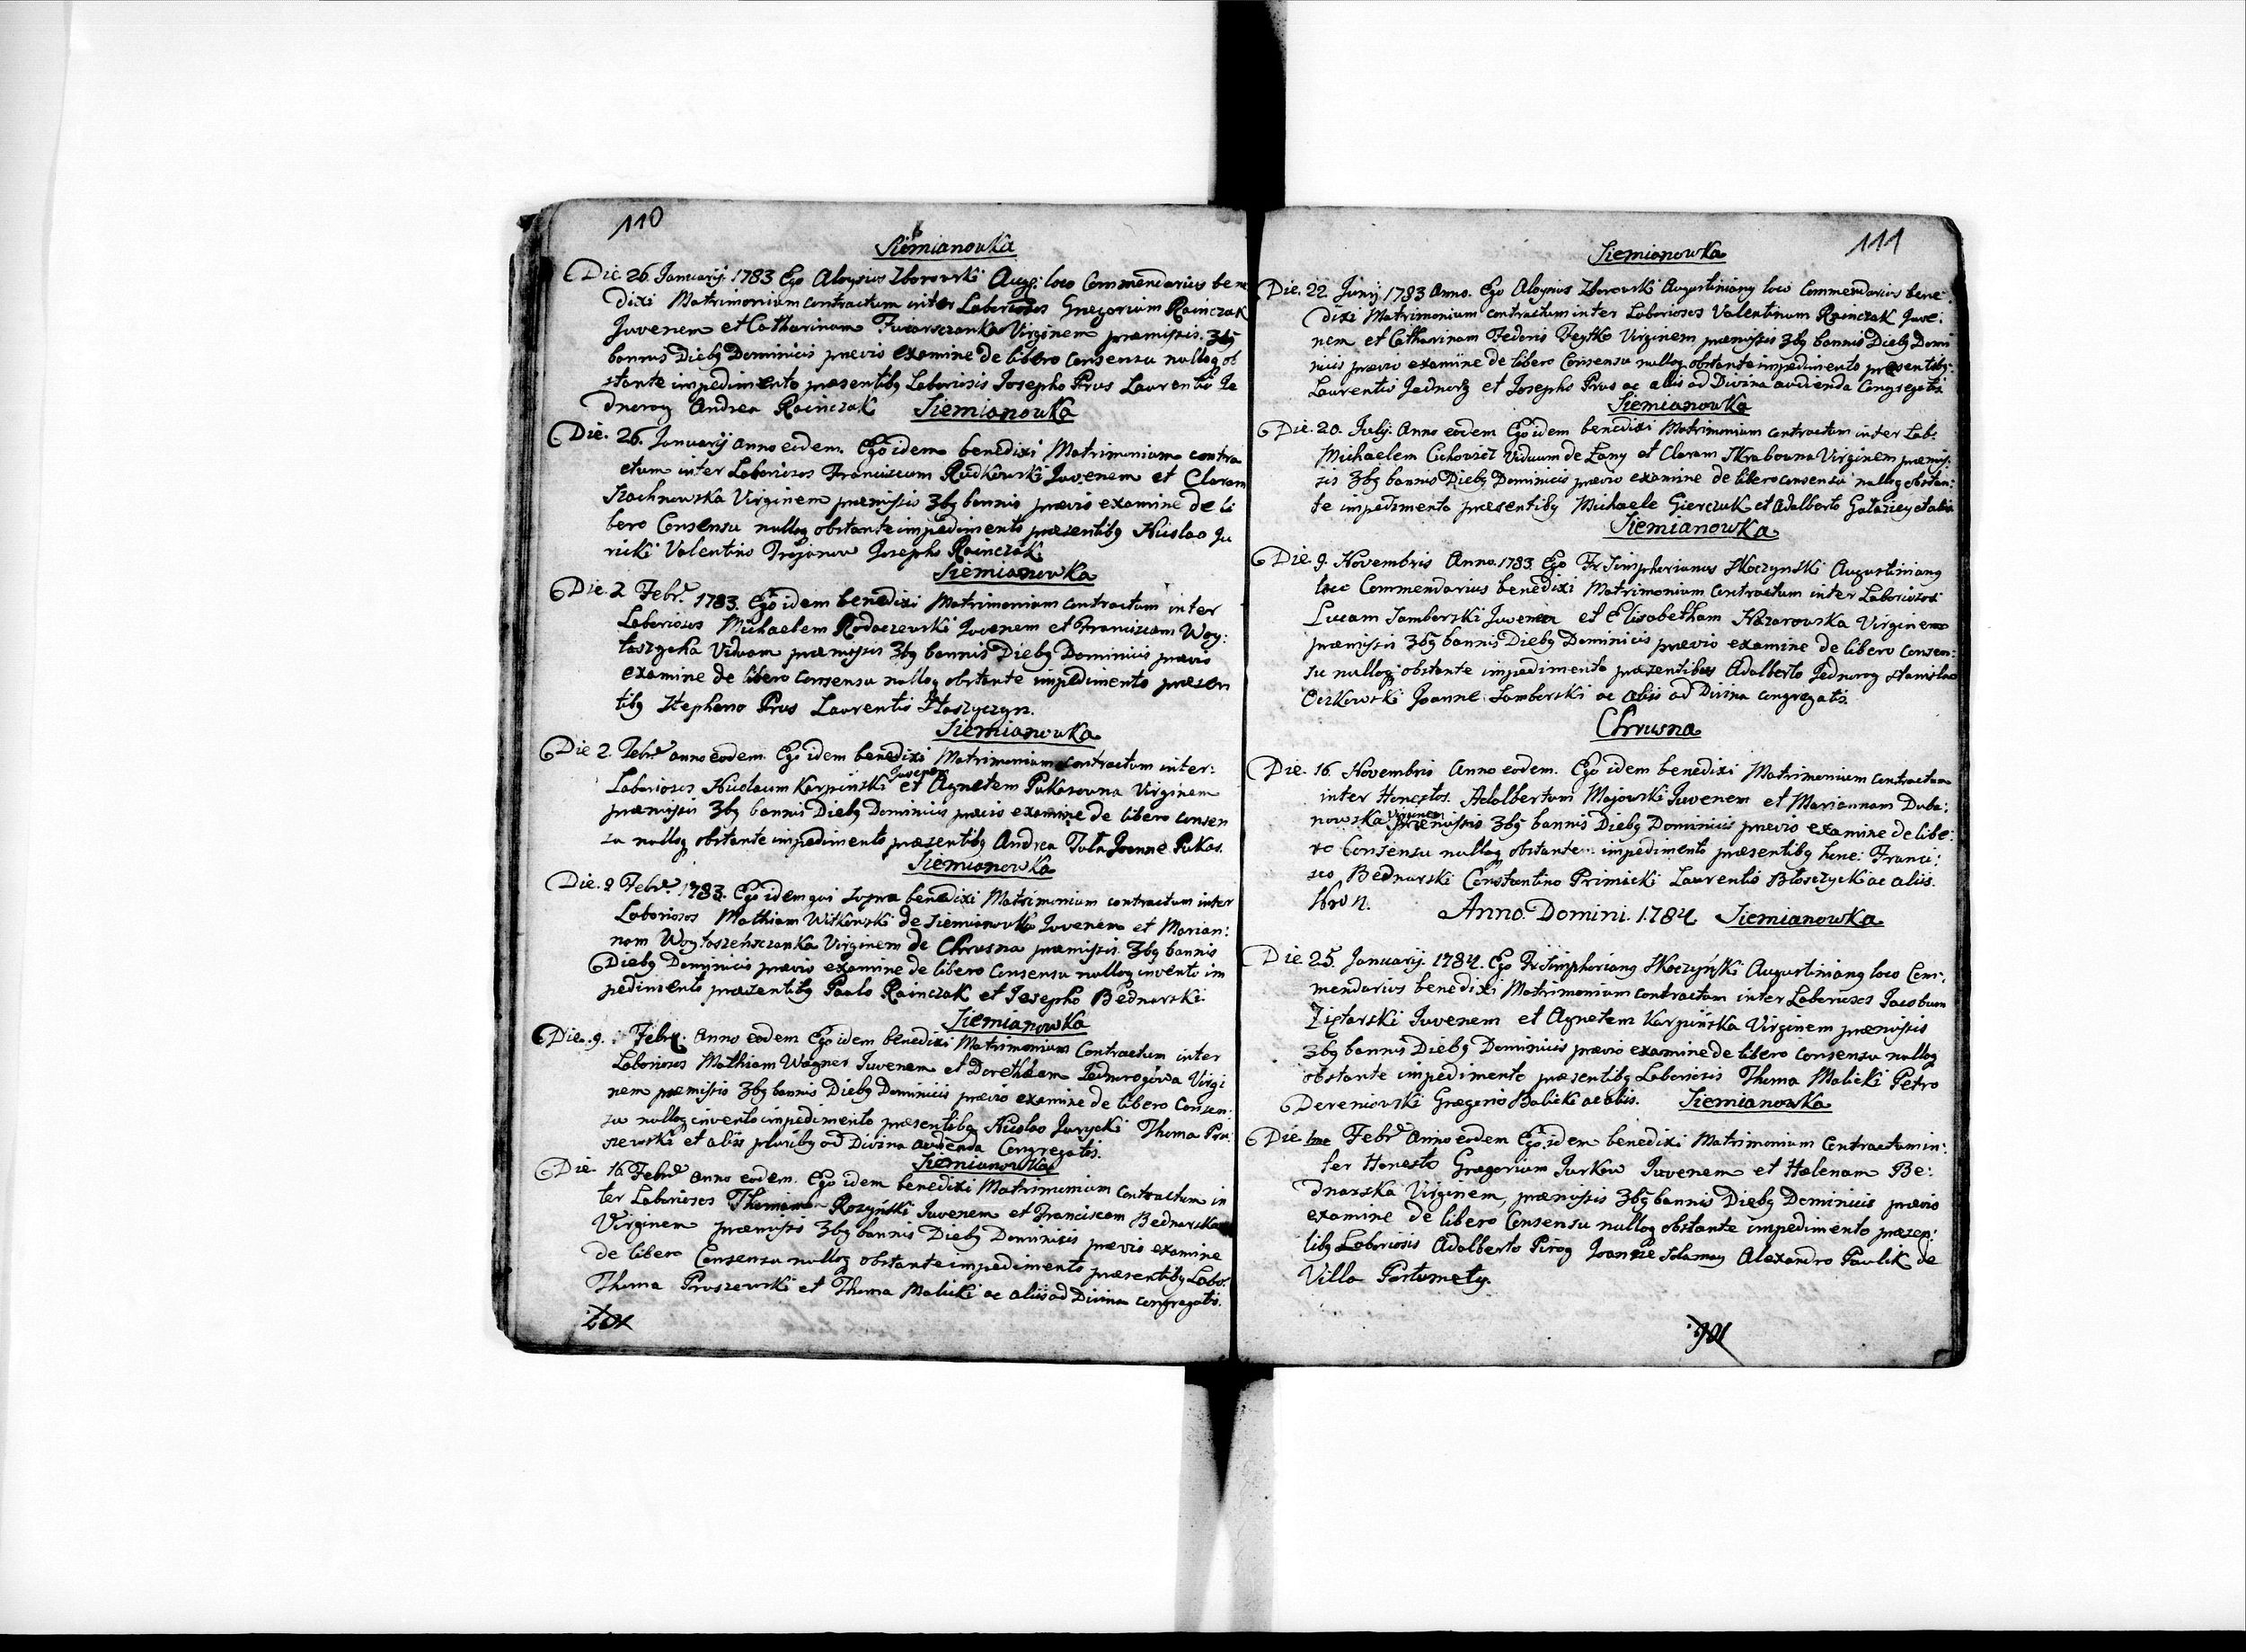 110
Siemianowka
Die 26 Januarij 1783 Ego Aloysius Zborowski Aug: loco Commendarius bene
dixi Matrimonium contractum inter Laboriosos Gregorium Rainczak
Juvenem et Catharinam Virginem præmissis 3bq
bannis Diebq Dominicis prævio examine de libero Consensu nulloq ob
stante impedimento præsentibq Laboriosis Josepho Prus Laurentio Je
dnorog Andrea Rainczak Siemianowka
Die. 26. Januarij anno eodem. Ego idem benedixi Matrimonium contra
ctum inter Laboriosos Franciscum Rudkowski Juvenem et Claram
Szachnowska Virginem præmissis 3bq bannis prævio examine de li
bero Consensu nulloq obstante impedimento præsentibq Nicolao Ju
ricki Valentino Trojanow Josepho Rainczak
Siemianowka
Die. 2 Febr. 1783. Ego idem benedixi Matrimonium contractum inter
Laboriosos Michaelem Rodaczewski Juvenem et Franciscam Woy:
taszycha Viduam præmissis 3bq bannis Diebq Dominicis prævio
examine de libero consensu nulloq obstante impedimento præsen
tibq Stephano Prus Laurentio
Siemianowka
Die 2. Febr. anno eodem. Ego idem benedixi Matrimonium contractum inter:
Juvenem
Laboriosos Nicolaum Karpinski et Agnetem Pukasowna Virginem
præmissis 3bq bannis Diebq Dominicis prævio examine de libero consen
su nulloq obstante impedimento præsentibq Andrea Tula Joanne Pukas.
Siemianowka
Die. 2 Febr. 1783. Ego idem qui supra benedixi Matrimonium contractum inter
Laboriosos Mathiam Witkowski de Siemianowka Juvenem et Marian:
nam Woytaszeńsczanka Virginem de Chrusna præmissis. 3bq bannis
Diebq Dominicis prævio examine de libero Consensu nulloq invento im
pedimento præsentibq Paulo Rainczak et Josepho Bednarski.
Siemianowka
Die. 9. Febr. Anno eodem Ego idem benedixi Matrimonium Contractum inter
Laboriosos Mathiam Wagner Juvenem et Dorotheam Jednorogowa Virgi
nem præmissis 3bq bannis Diebq Dominicis prævio examine de libero Consen:
su nulloq invento impedimento præsentibq Nicolao Jurycki Thoma Pru:
szewski et aliis pluribq ad Divina audienda Congregatis.
Siemianowka
Die. 16. Febr. Anno eodem. Ego idem benedixi Matrimonium Contractum in
ter Laboriosos Thomam Rozyński Juvenem et Franciscam Bednarska
Virginem præmissis 3bq bannis Diebq Dominicis prævio examine
de libero Consensu nulloq obstante impedimento præsentibq Labor.
Thoma Pruszewski et Thoma Malicki ac aliis ad Divina congregatis.
111
Siemianowka
Die. 22. Junij 1783 Anno. Ego Aloysius Zborowski Augustinianq loco Commendarius bene:
dixi Matrimonium contractum inter Laboriosos Valentinum Rainczak Juve:
nem et Catharinam Fedoris Feytko Virginem præmissis 3bq bannis Diebq Domi
nicis prævio examine de libero Consensu nulloq obstante impedimento præsentibq:
Laurentio Jednorg et Josepho Prus ac aliis ad Divina audienda Congregatis
Siemianowka
Die. 20. Julij. Anno eodem Ego idem benedixi Matrimonium contractum inter Lab:
Michaelem Viduum de Łany et Claram Skrabowna Virginem præmis:
sis 3bq bannis Diebq Dominicis prævio examine de libero consensu nulloq obstan:
te impedimento præsentibq Michaele Gierczuk et Adalberto et aliis
Siemianowka
Die. 9. Novembris Anno. 1783 Ego Fr Simphorianus Skoczynski Augustinianq
loco Commendarius benedixi Matrimonium Contractum inter Laboriosos
Lucam Samborski Juvenem et Elisabetham Nazarowska Virginem
præmissis 3bq bannis Diebq Dominicis prævio examine de libero Consen:
su nulloq obstante impedimento præsentibus Adalberto Jednorog Stanislao
Ociskowski Joanne Samborski ac aliis ad Divina congregatis.
Chrusna
Die. 16. Novembris Anno eodem. Ego idem benedixi Matrimonium contractum
inter Honestos. Adalbertum Majowski Juvenem et Mariannam Duba:
virginem
nowska præmissis. 3bq bannis Diebq Dominicis prævio examine de libe:
ro Consensu nulloq obstante impedimento præsentibq hone: Franci:
sco Bednarski Constantino Primicki Laurentio Błoszycki ac aliis.
Anno. Domini. 1784 Siemianowka
Die 25. Januarij. 1784. Ego Fr Simphorianq Skoczyński Augustinianq loco Com:
mendarius benedixi Matrimonium contractum inter Laboriosos Jacobum
Ziętarski Juvenem et Agnetem Karpińska Virginem præmissis
3bq bannis Diebq Dominicis prævio examine de libero consensu nulloq
obstante impedimento præsentibq Laboriosis Thoma Malicki Petro
Dereniowski Gregorio Balicki ac aliis. Siemianowka
Die. 1ma Febr. Anno eodem Ego idem benedixi Matrimonium Contractum in:
ter Honesto Gregorium Jurkow Juvenem et Helenam Be:
dnarska Virginem, præmissis 3bq bannis Diebq Dominicis prævio
examine de libero Consensu nulloq obstante impedimento præsen:
tibq Laboriosis Adalberto Pirog Joanne Salamay Alexandro Pawlik de
Villa Portumety.